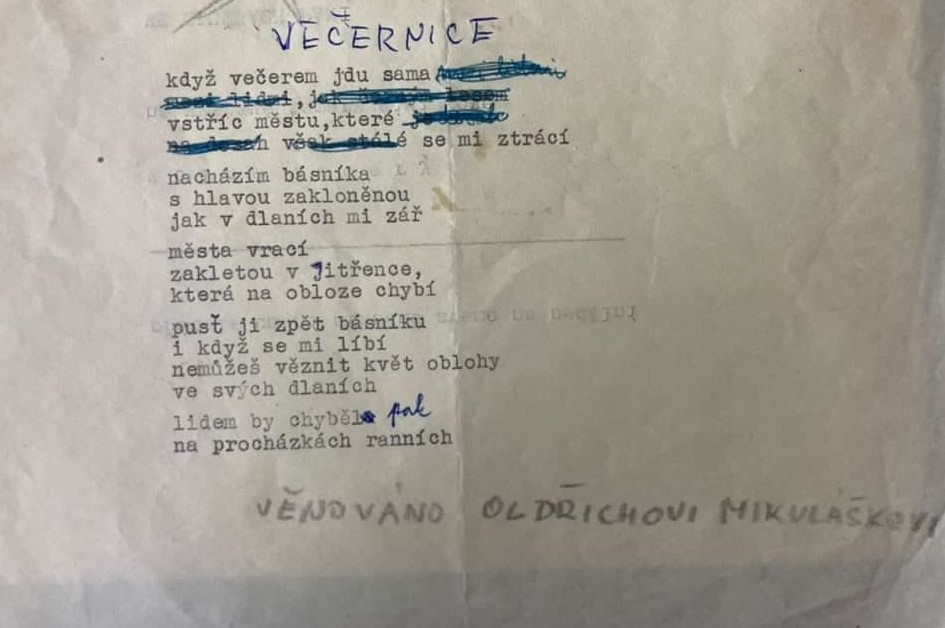 VEČERNICE
když večerem jdu sama
vstříc městu, které
se mi ztrácí
nacházím básníka
s hlavou zakloněnou
jak v dlaních mi zář
města vrací
zakletou v Jitřence,
která na obloze chybí
pusť ji zpět básníku
i když se mi líbí
nemůžeš věznit květ oblohy
ve svých dlaních
lidem by chyběl pak
na procházkách ranních
VĚNOVÁNO OLDŘICHOVI MIKULÁŠKOVI